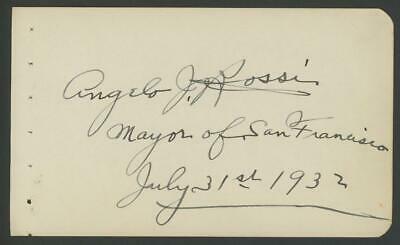 Angelo J. Rossi
Mayor of San Francisco
July 31st 1932